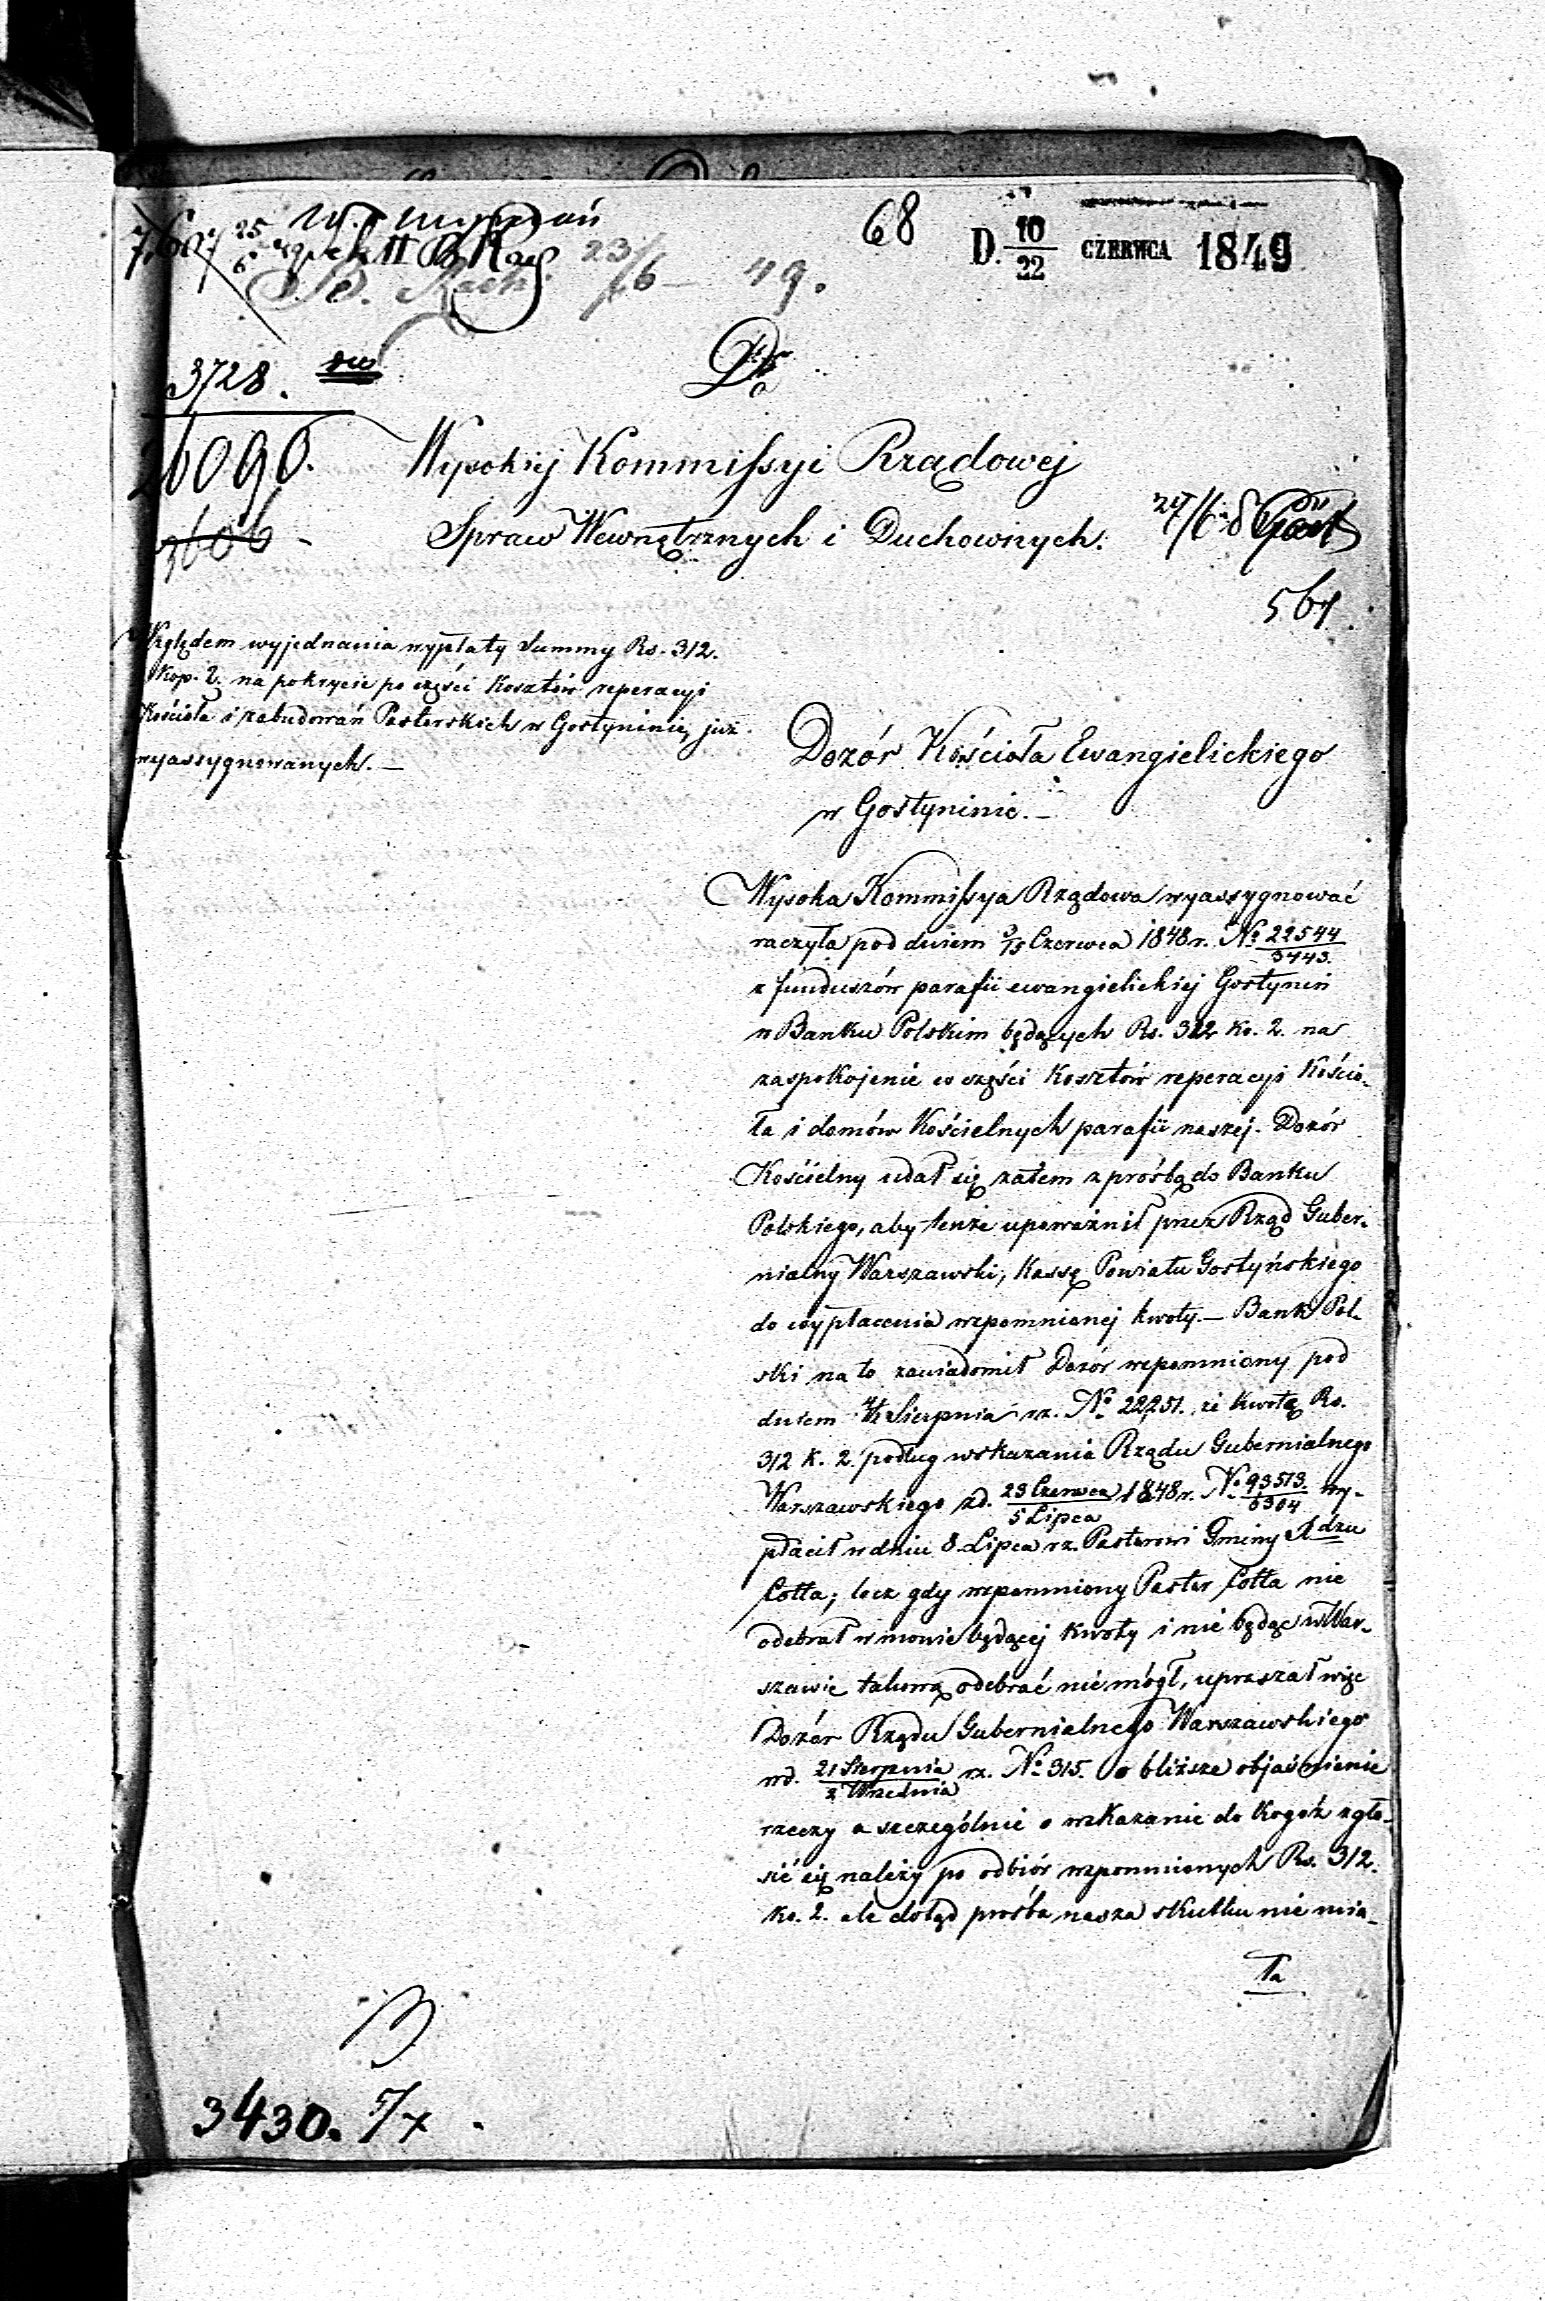 68
D. 10/22 CZERWCA 1849
23/6 49.
3728.
26090.
3606
Do
Wysokiej Kommissyi Rządowej
Spraw Wewnętrznych i Duchownych.
561.
Względem wyjednania wypłaty Summy Rs. 312.
Kop. 2. na pokrycie po części Kosztów reperacyi
Kościoła i zabudowań Pasterskich w Gostyninie, już
wyassygnowanych. —
Dozór Kościoła Ewangielickiego
w Gostyninie. —
Wysoka Kommissya Rządowa wyassygnować
raczyła pod dniem 3/15 Czerwca 1848 r. No 22544/3443.
z funduszów parafii ewangielickiej Gostynin
w Banku Polskim będących Rs. 312 ko. 2. na
zaspokojenie w części Kosztów reperacyi Kościo-
ła i domów Kościelnych parafii naszej. Dozór
Kościelny udał się zatem z prośbą do Banku
Polskiego, aby tenże upoważnił przez Rząd Guber-
nialny Warszawski, Kassę Powiatu Gostyńskiego
do wypłacenia wspomnionej kwoty. — Bank Pol-
ski na to zawiadomił Dozór wspomniony pod
dniem Sierpnia r.z. No 22,251. że kwotę Rs.
312 K. 2. podług wskazania Rządu Gubernialnego
Warszawskiego z d. 23 Czerwca/5 Lipca 1848 r. No 93513./6304 wy-
płacił w dniu 8. Lipca r.z. Pasterowi Gminy
Lotta; lecz gdy wspomniony Paster Lotta nie
odebrał w mowie będącej kwoty i nie będąc w War-
szawie takową odebrać nie mógł, upraszał więc
Dozór Rządu Gubernialnego Warszawskiego
w d. 21 Sierpnia/2 Września r.z. No 315. o bliższe objaśnienie
rzeczy a szczególnie o wskazanie do Kogoż zgło-
sić się należy po odbiór wspomnionych Rs. 312.
ko. 2. ale dotąd prośba nasza skutku nie mia-
ła
3430. 5/x